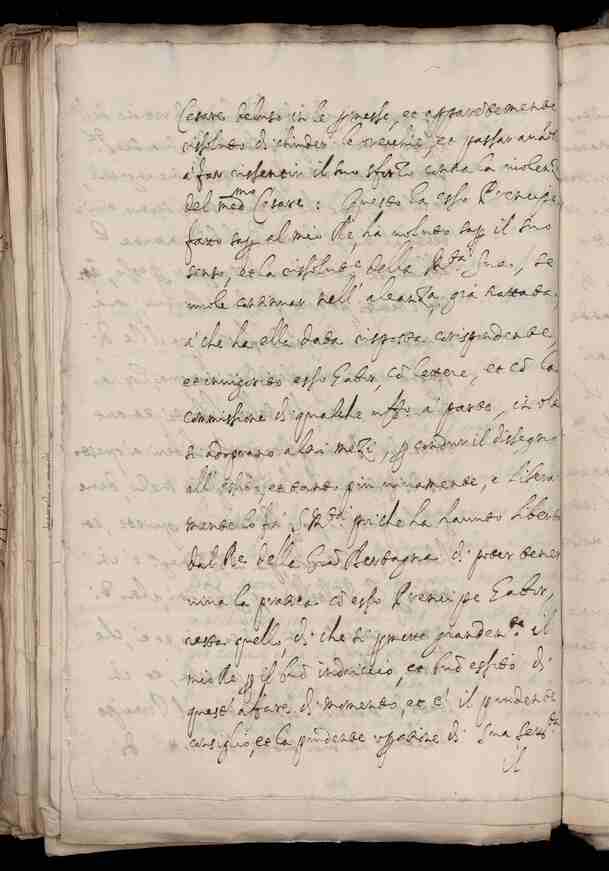 Cesare deluso in le pmesse, et apparentemente
rissoluto di chiuder le orecchie, et passar anho
à far rissentir il suo sforzo contra la violenza
del med.mo Cesare: Questo ha esso Prencipe
fatto sap. al mio Rè, ha voluto sap. il suo
senso, et la rissolutne della M.tà Sua, se
vuole continuar nell' aleanza già trattata,
à che ha ella data risposta corispondente,
et invigorito esso Gabor, cō lettere, et cō la
commissione di qualche uff.o à parte, in oltre
si adoprano altri mezi, p condur il dissegno
all' essito, et tanto più vivamente, e libera
mente lo fà S. M.tà poiche ha havuto libertà
dal Rè della Grā Bertagna di poter tener
viva la pratica cō esso Prencipe Gabor,
questo, di che si pmette granden.te il
mio Rè p il buō indriccio, et buō essito di
quest' affare di momento, et è il prudente
consiglio, et la prudente opatione di Sua Ser.tà
il